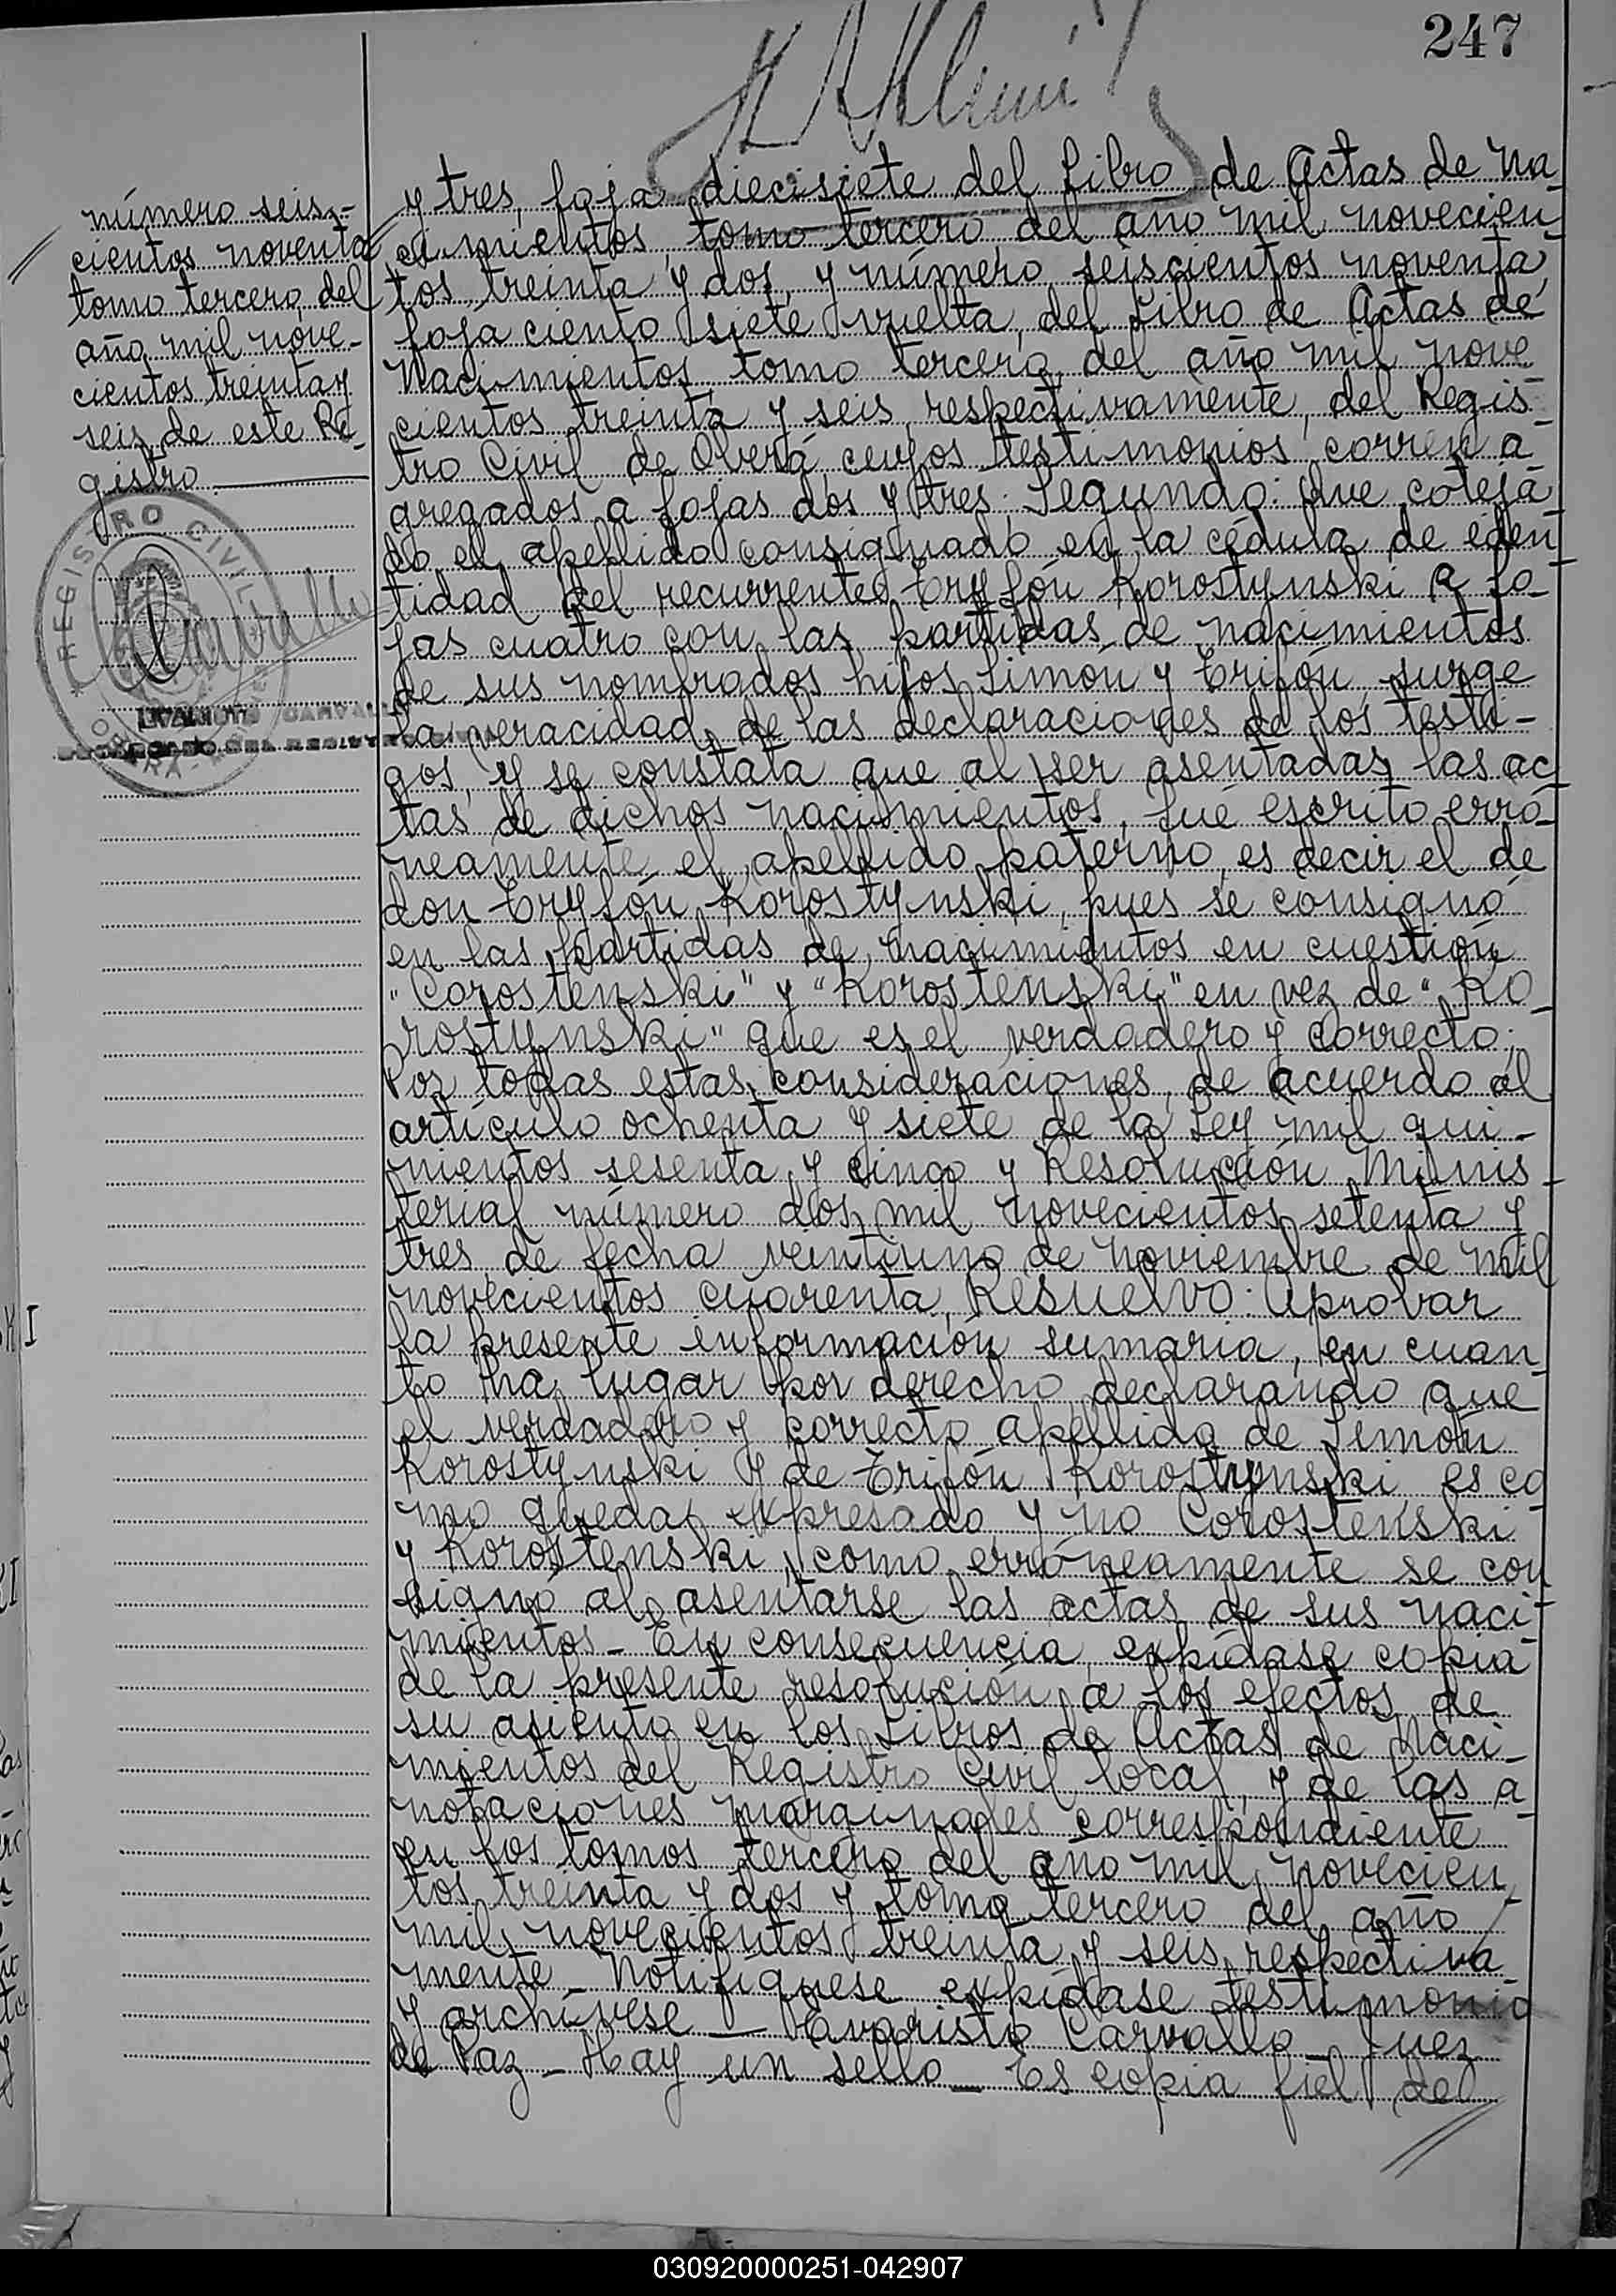 247
número seis-
cientos noventa
tomo tercero, del
año mil nove-
cientos treinta y
seis, de este Re-
gistro.
REGISTRO CIVIL
CARVALLO
ENCARGADO DEL REGISTRO CIVIL
y tres, foja diecisiete del Libro de Actas de Na-
cimientos, tomo tercero, del año mil novecien-
tos treinta y dos, y número seiscientos noventa,
foja ciento siete vuelta, del Libro de Actas de
Nacimientos, tomo tercero, del año mil nove
cientos treinta y seis, respectivamente, del Regis-
tro Civil de Oberá, cuyos testimonios corren a-
gregados a fojas dos y tres; Segundo: Que coteja-
do el apellido consignado en la cédula de iden-
tidad del recurrente Tryfón Korostynski a fo-
jas cuatro con las partidas de nacimientos
de sus nombrados hijos Simón y Trifón, surge
la veracidad de las declaraciones de los testi-
gos, y se constata que al ser asentadas las ac-
tas de dichos nacimientos, fué escrito erró-
neamente el apellido paterno, es decir el de
don Tryfón Korostynski, pues se consignó
en las partidas de nacimientos en cuestión
"Corostenski" y "Korostenski" en vez de "Ko-
rostynski" que es el verdadero y correcto;
Por todas estas consideraciones, de acuerdo al
artículo ochenta y siete de la Ley mil qui-
nientos sesenta y cinco y Resolución Minis-
terial número dos mil novecientos setenta y
tres, de fecha veintiuno de noviembre de mil
novecientos cuarenta, Resuelvo: Aprobar
la presente información sumaria, en cuan-
to ha lugar por derecho, declarando que
el verdadero y correcto apellido de Simón
Korostynski y de Trifón Korostynski, es co
mo queda expresado y no Corostenski
y Korostenski, como erróneamente se con
signó al asentarse las actas de sus naci-
mientos_ En consecuencia, expídase copia
de la presente resolución, a los efectos de
su asiento en los Libros de Actas de Naci-
mientos del Registro Civil local, y de las a-
notaciones marginales correspondiente
en los tomos tercero del año mil novecien
tos treinta y dos y tomo tercero del año
mil novecientos treinta y seis, respectiva
mente_ Notifíquese, expídase testimonio
y archívese_ Evaristo Carvallo_ Juez
de Paz_ Hay un sello_ Es copia fiel del
030920000251-042907